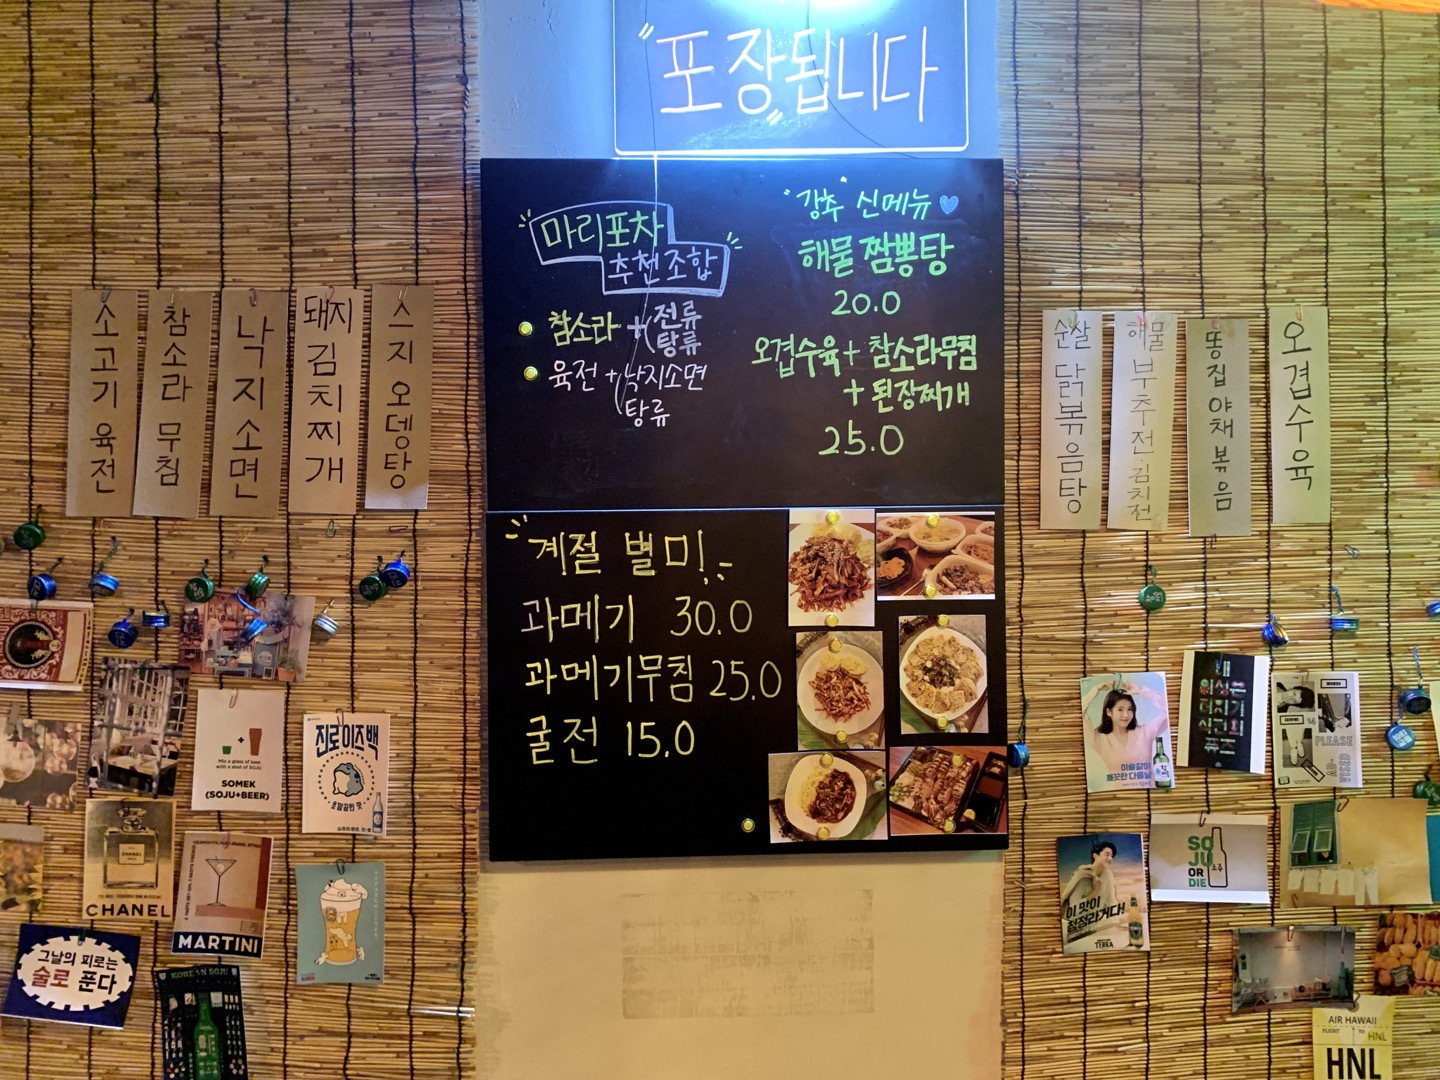 "포장됩니다"
마리포차
추천조합
참소라 + (전류
탕류
육전 + (낙지소면
탕류
"강추" 신메뉴
해물짬뽕탕
20.0
오겹수육 + 참소라무침
+ 된장찌개
25.0
계절 별미!
과메기 30.0
과메기무침 25.0
굴전 15.0
소고기육전
참소라무침
낙지소면
돼지김치찌개
스지오뎅탕
순살닭볶음탕
해물부추전·김치전
똥집야채볶음
오겹수육
SOMEK
(SOJU+BEER)
진로이즈백
CHANEL
MARTINI
그날의 피로는
술로 푼다
KOREAN SOJU
이슬같이
깨끗한 다음날
PLEASE
SO
JU
OR
DIE
소주
이 맛이
청정라거다!
TERRA
AIR HAWAII
FLIGHT TO
HNL
HNL